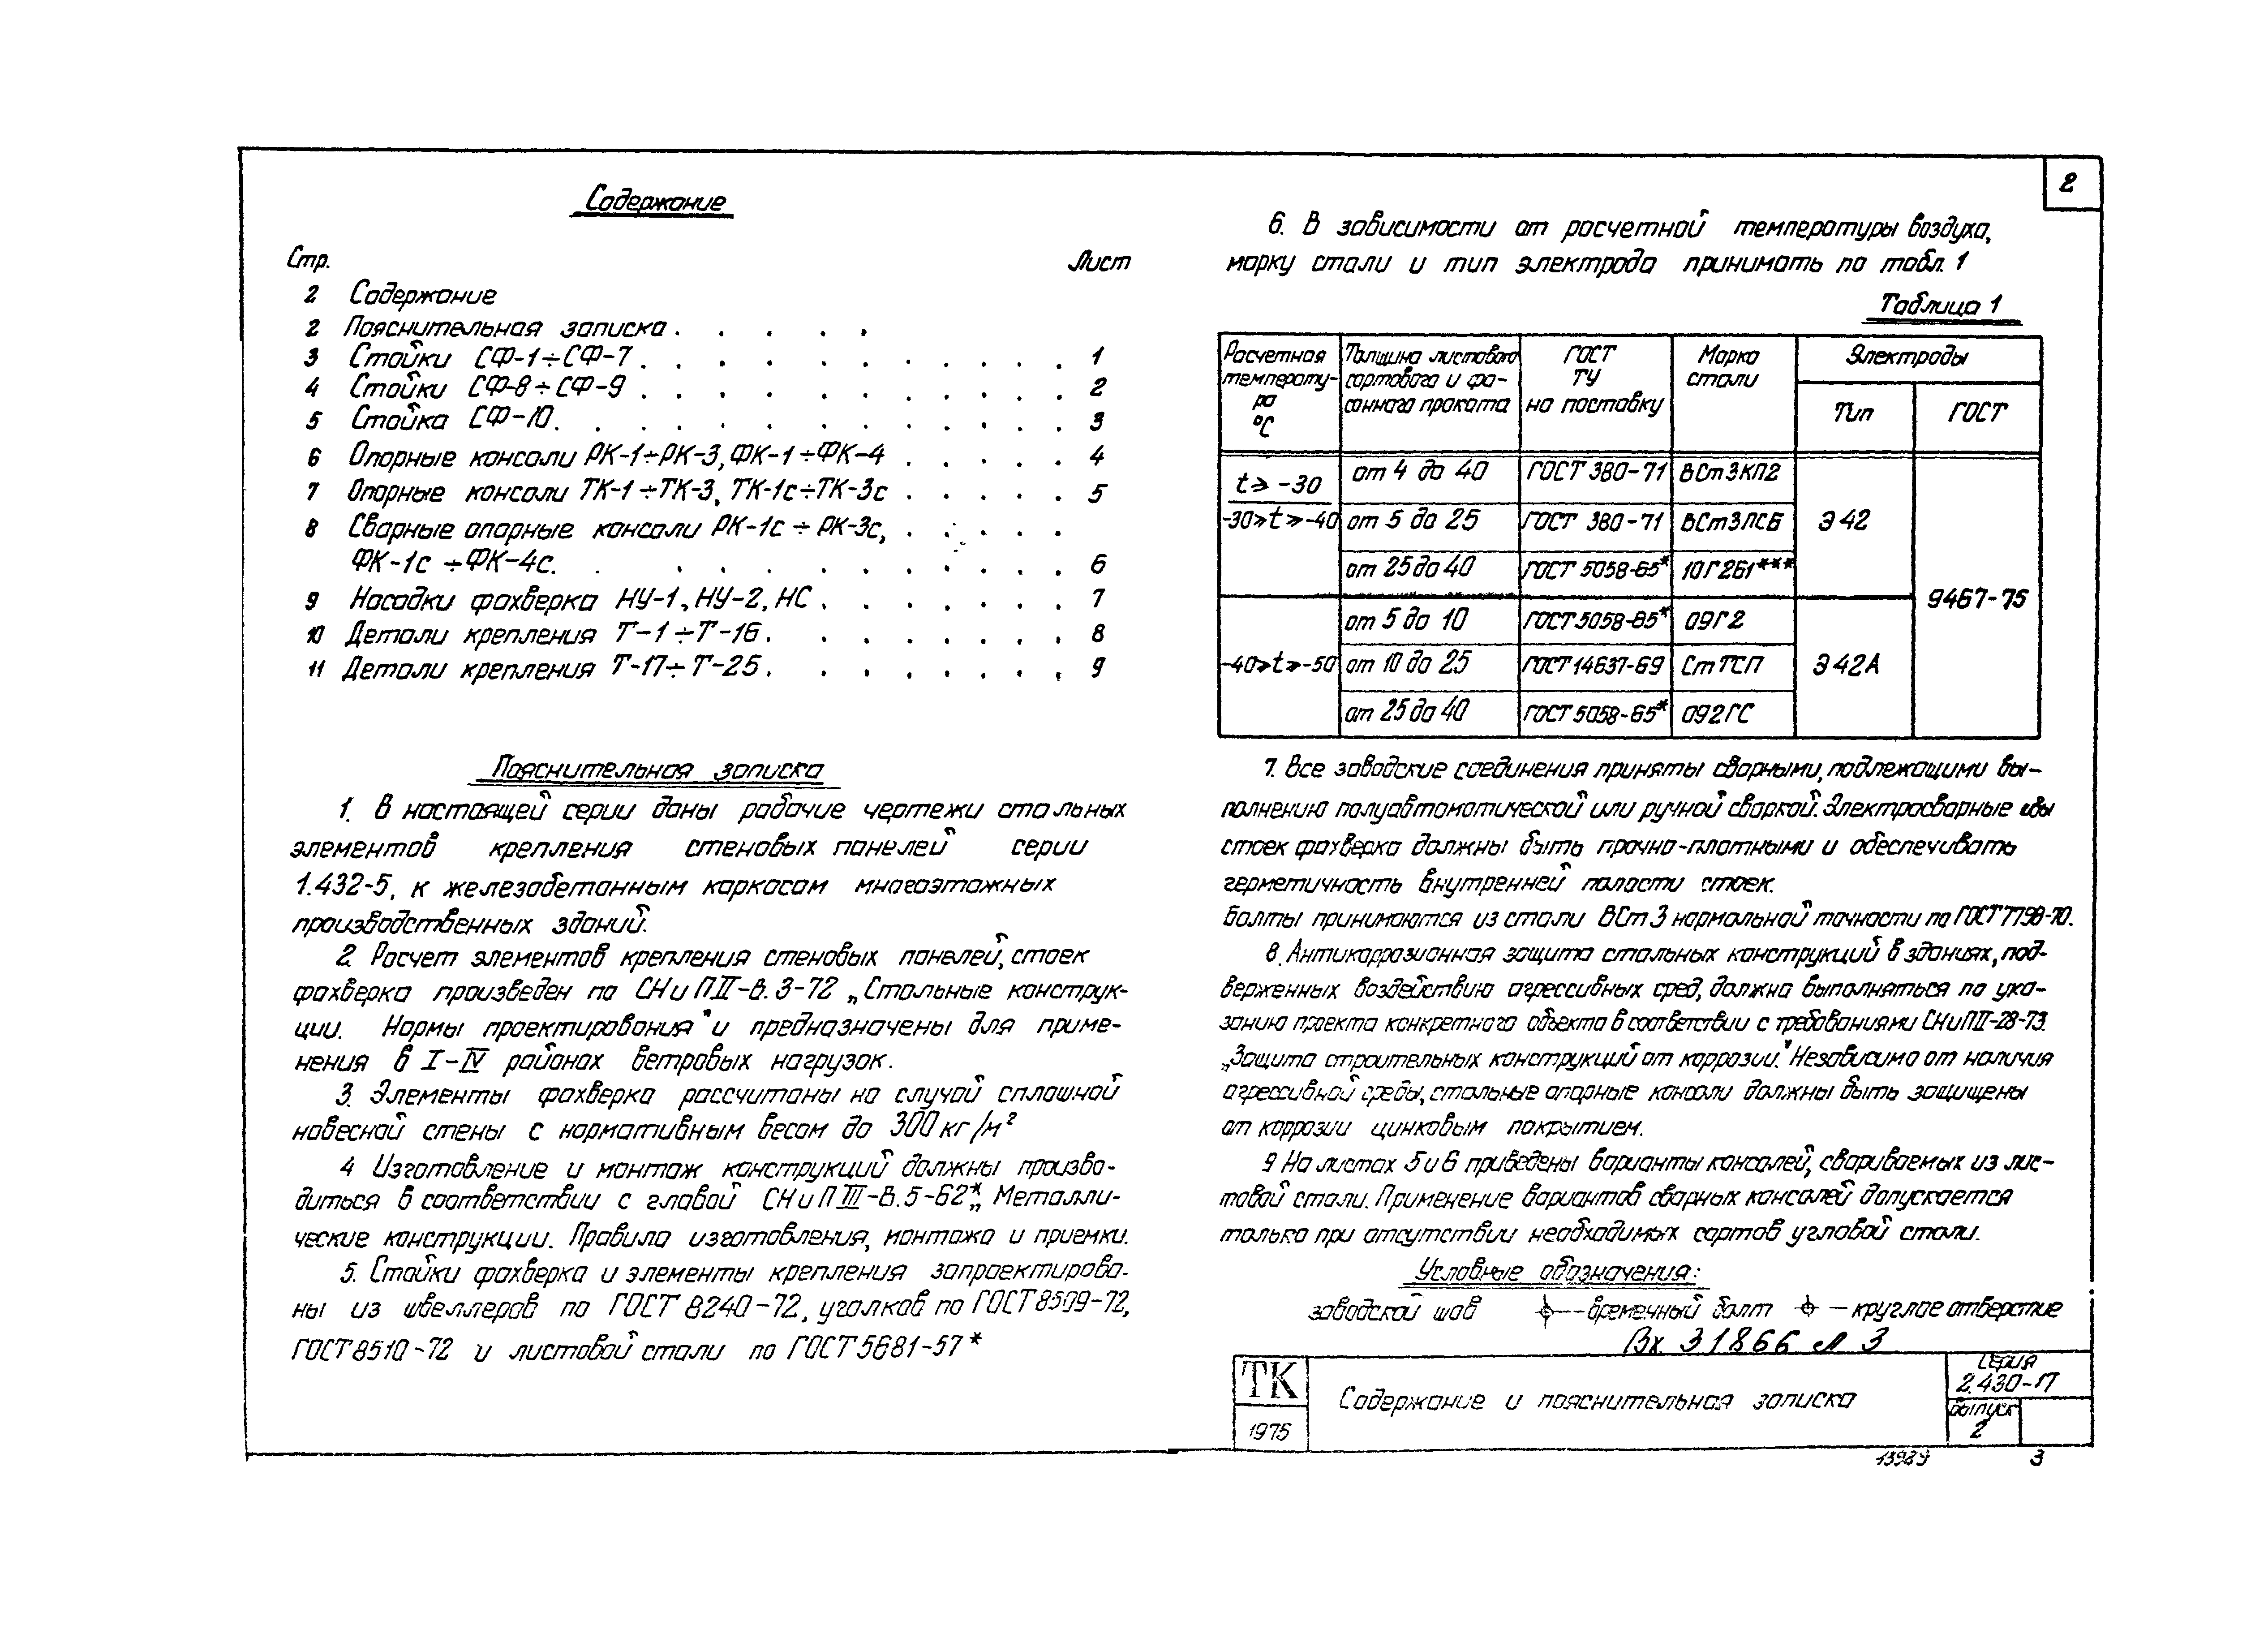 2
Содержание
Стр. Лист
2 Содержание
2 Пояснительная записка . . . . .
3 Стойки СФ-1÷СФ-7 . . . . . . . . . . . 1
4 Стойки СФ-8÷СФ-9 . . . . . . . . . . . 2
5 Стойка СФ-10 . . . . . . . . . . . 3
6 Опорные консоли РК-1÷РК-3, ФК-1÷ФК-4 . . . . . 4
7 Опорные консоли ТК-1÷ТК-3, ТК-1с÷ТК-3с . . . . . 5
8 Сварные опорные консоли РК-1с÷РК-3с, . . . . .
ФК-1с÷ФК-4с. . . . . . . . . . 6
9 Насадки фахверка НУ-1, НУ-2, НС . . . . . . . 7
10 Детали крепления Т-1÷Т-16 . . . . . . . 8
11 Детали крепления Т-17÷Т-25 . . . . . . . 9
Пояснительная записка
1. В настоящей серии даны рабочие чертежи стальных
элементов крепления стеновых панелей серии
1.432-5, к железобетонным каркасам многоэтажных
производственных зданий.
2. Расчет элементов крепления стеновых панелей, стоек
фахверка произведен по СНиП II-В.3-72 „Стальные конструк-
ции. Нормы проектирования" и предназначены для приме-
нения в I-IV районах ветровых нагрузок.
3. Элементы фахверка рассчитаны на случай сплошной
навесной стены с нормативным весом до 300 кг/м²
4 Изготовление и монтаж конструкций должны произво-
диться в соответствии с главой СНиП III-В.5-62* „Металли-
ческие конструкции. Правила изготовления, монтажа и приемки.
5. Стойки фахверка и элементы крепления запроектирова-
ны из швеллеров по ГОСТ 8240-72, уголков по ГОСТ 8509-72,
ГОСТ 8510-72 и листовой стали по ГОСТ 5681-57*
6. В зависимости от расчетной температуры воздуха,
марку стали и тип электрода принимать по табл. 1
Таблица 1
Расчетная температу-ра °С Толщина листового сортового и фа-сонного проката ГОСТ ТУ на поставку Марка стали Электроды
Тип ГОСТ
t⩾-30 от 4 до 40 ГОСТ 380-71 ВСт3КП2
-30>t⩾-40 от 5 до 25 ГОСТ 380-71 ВСт3ПС6 Э42
от 25 до 40 ГОСТ 5058-65* 10Г2Б1***
9467-75
от 5 до 10 ГОСТ 5058-65* 09Г2
-40>t⩾-50 от 10 до 25 ГОСТ 14637-69 СтТСП Э42А
от 25 до 40 ГОСТ 5058-65* 092ГС
7. Все заводские соединения приняты сварными, подлежащими вы-
полнению полуавтоматической или ручной сваркой. Электросварные швы
стоек фахверка должны быть прочно-плотными и обеспечивать
герметичность внутренней полости стоек.
Болты принимаются из стали ВСт.3 нормальной точности по ГОСТ 7798-70.
8. Антикоррозионная защита стальных конструкций в зданиях, под-
верженных воздействию агрессивных сред, должна выполняться по ука-
занию проекта конкретного объекта в соответствии с требованиями СНиП II-28-73.
„Защита строительных конструкций от коррозии." Независимо от наличия
агрессивной среды, стальные опорные консоли должны быть защищены
от коррозии цинковым покрытием.
9 На листах 5 и 6 приведены варианты консолей, свариваемых из лис-
товой стали. Применение вариантов сварных консолей допускается
только при отсутствии необходимых сортов угловой стали.
Условные обозначения:
заводской шов — временный болт — круглое отверстие
Вх 31866 л 3
ТК
1975
Содержание и пояснительная записка
Серия
2.430-17
Выпуск
2
13989 3